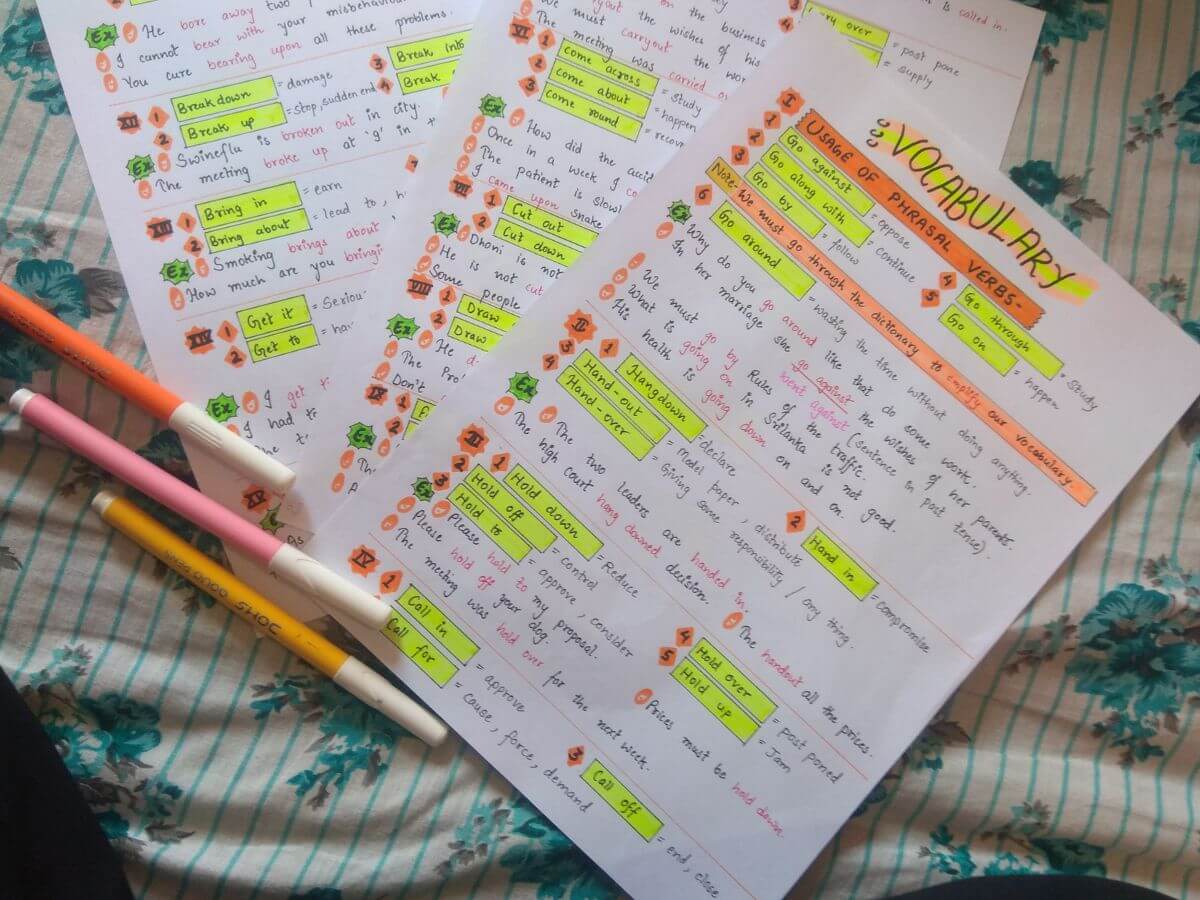 VOCABULARY
I USAGE OF PHRASAL VERBS-
1 Go against = oppose
2 Go along with = continue
3 Go by = follow
4 Go through = study
5 Go on = happen
Note- We must go through the dictionary to emplify our vocabulary.
6 Go around = wasting the time without doing anything.
Ex Why do you go around like that do some work.
In her marriage she go against the wishes of her parents.
went against (sentence in past tense).
We must go by Rules of the traffic.
What is going on in Srilanka is not good.
His health is going down on and on.
II 1 Hangdown = declare
2 Hand in = compromise
3 Hand-out = Model paper, distribute
4 Hand-over = Giving some responsibility / any thing.
Ex The two leaders are handed in.
The handout all the prizes.
The high court hang downed decision.
III 1 Hold down = Reduce
2 Hold off = control
3 Hold to = approve, consider
4 Hold over = post poned
5 Hold up = Jam
Ex Please hold to my proposal.
Prices must be hold down
Please hold off your dog.
The meeting was hold over for the next week.
IV 1 Call in = approve
Call for = cause, force, demand
3 Call off = end, close
Ex He bore away two
I cannot bear with your misbehaviou
You cure bearing upon all these problems.
XII 1 Breakdown = damage
2 Break up = stop, sudden end
3 Break into
4 Break
Ex Swineflu is broken out in city.
The meeting broke up at 'g' in
XIII 1 Bring in = earn
2 Bring about = lead to,
Ex Smoking brings about
How much are you bringi
XIV 1 Get it = Seriou
2 Get to = hav
Ex I get
I had to
XV
As
on the business
out the wishes of his
We must carryout the wor
The meeting was carried o
VI 1 come across = study
2 come about = happen
3 come round = recov
Ex How did the acci
Once in a week I co
The patient is slowl
I came upon snake
VII 1 Cut out
2 Cut down
Ex Dhoni is not
He is not cut
Some people
VIII 1 Draw
2 Draw
Ex He d
The Pro
IX 1
2
Don't
Ex The
is called in.
rry over = post pone
= supply